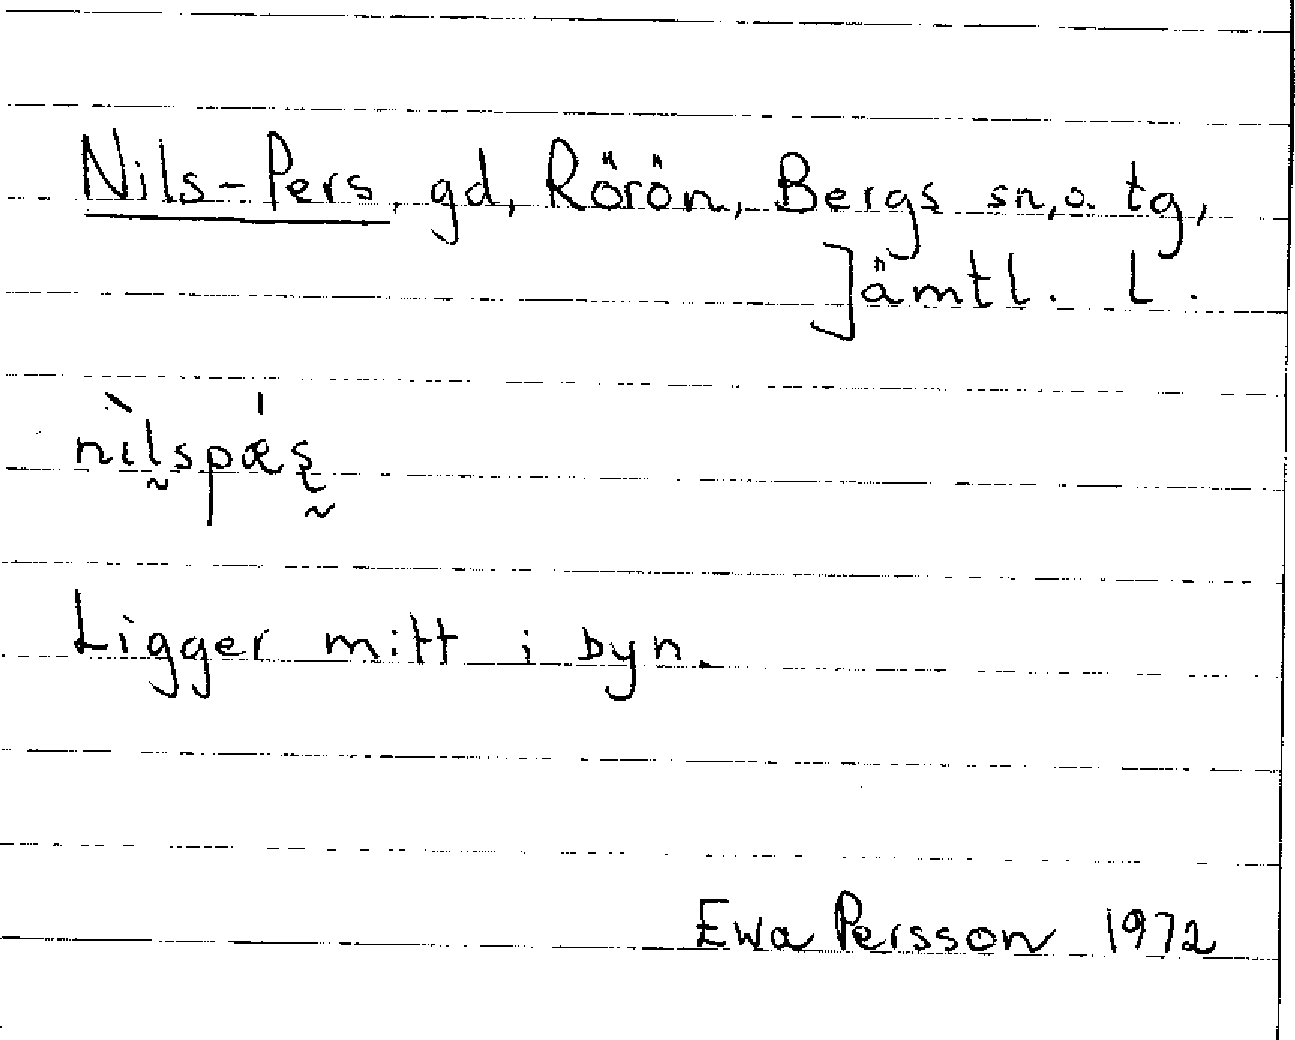 Nils-Pers, gd, Rörön, Bergs sn, o. tg,
Jämtl. L.
nìl̰spǽʂ̰
Ligger mitt i byn.
Ewa Persson 1972